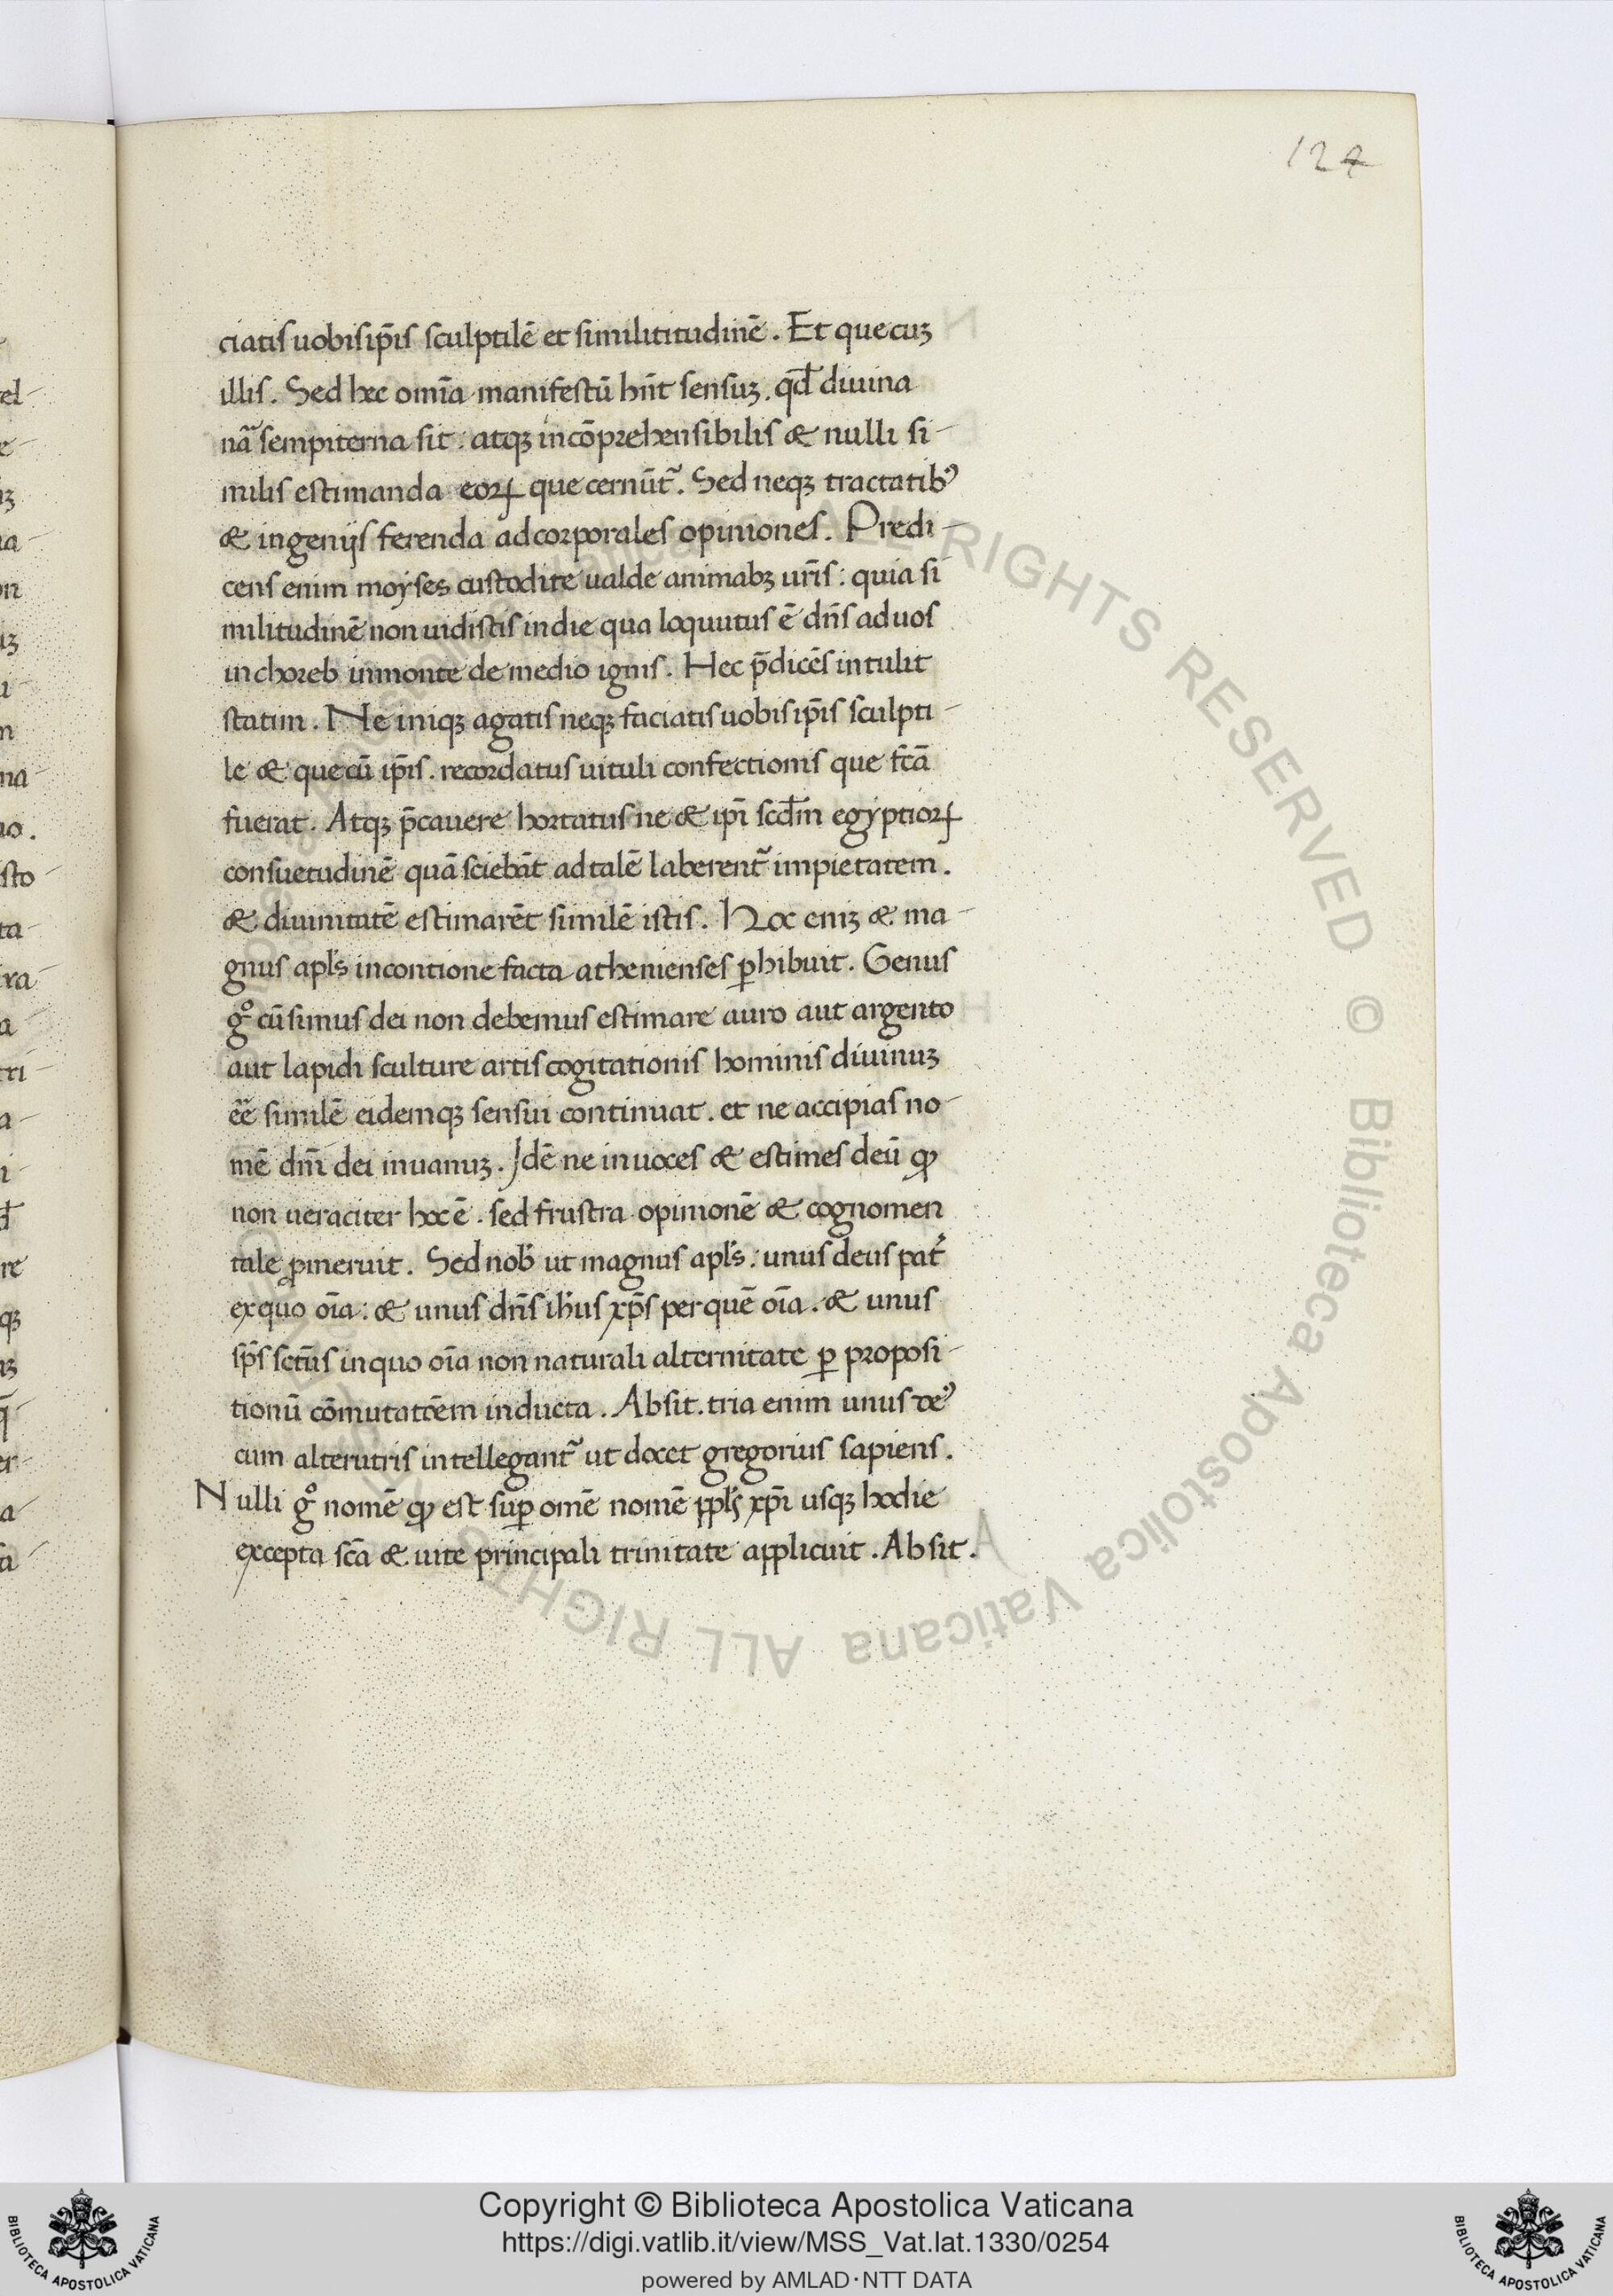 124
ciatis uobis ip̄is sculptilē et similititudinē. Et que cuꝫ
illis. Sed hec om̄ia manifestū hn̄t sensuꝫ. qd̄ diuina
nā sempiterna sit: atqꝫ incōprehensibilis & nulli si-
milis estimanda eoꝝ que cernūt᷑. Sed neqꝫ tractatibꝰ
& ingenijs ferenda ad corporales opiniones. Predi-
cens enim moyses custodite ualde animabꝫ ur̄is: quia si
militudinē non uidistis in die qua loquutus ē dn̄s ad uos
in choreb in monte de medio ignis. Hec p̄dicēs intulit
statim. Ne iniqꝫ agatis neqꝫ faciatis uobis ip̄is sculpti-
le & que cū ip̄is. recordatus uituli confectionis que fc̄ā
fuerat. Atqꝫ p̄cauere hortatus ne & ip̄i scd̄m egyptioꝝ
consuetudinē quā sciebāt ad talē laberent᷑ impietatem.
& diuinitatē estimarēt similē istis. Hoc eniꝫ & ma-
gnus apl̄s in contione facta athenienses ꝑhibuit. Genus
gͦ cū simus dei non debemus estimare auro aut argento
aut lapidi sculture artis cogitationis hominis diuinuꝫ
eē similē eidemqꝫ sensui continuat. et ne accipias no-
mē dn̄i dei in uanuꝫ. Idē ne inuoces & estimes deū ꝙ
non ueraciter hoc ē. sed frustra opinionē & cognomen
tale ꝓmeruit. Sed nob̄ ut magnus apl̄s: unus deus pat᷑
ex quo oīa: & unus dn̄s ih̄us xp̄s per quē oīa. & unus
sp̄s sct̄us in quo oīa non naturali alternitate ꝑ proposi-
tionū cōmutatōem inducta. Absit. tria enim unus deꝰ
cum alterutris intellegant᷑ ut docet gregorius sapiens.
Nulli gͦ nomē ꝙ est suꝑ omē nomē ppl̄s xp̄i usqꝫ hodie
excepta sc̄a & uite principali trinitate applicuit. Absit.
Copyright © Biblioteca Apostolica Vaticana
https://digi.vatlib.it/view/MSS_Vat.lat.1330/0254
powered by AMLAD·NTT DATA